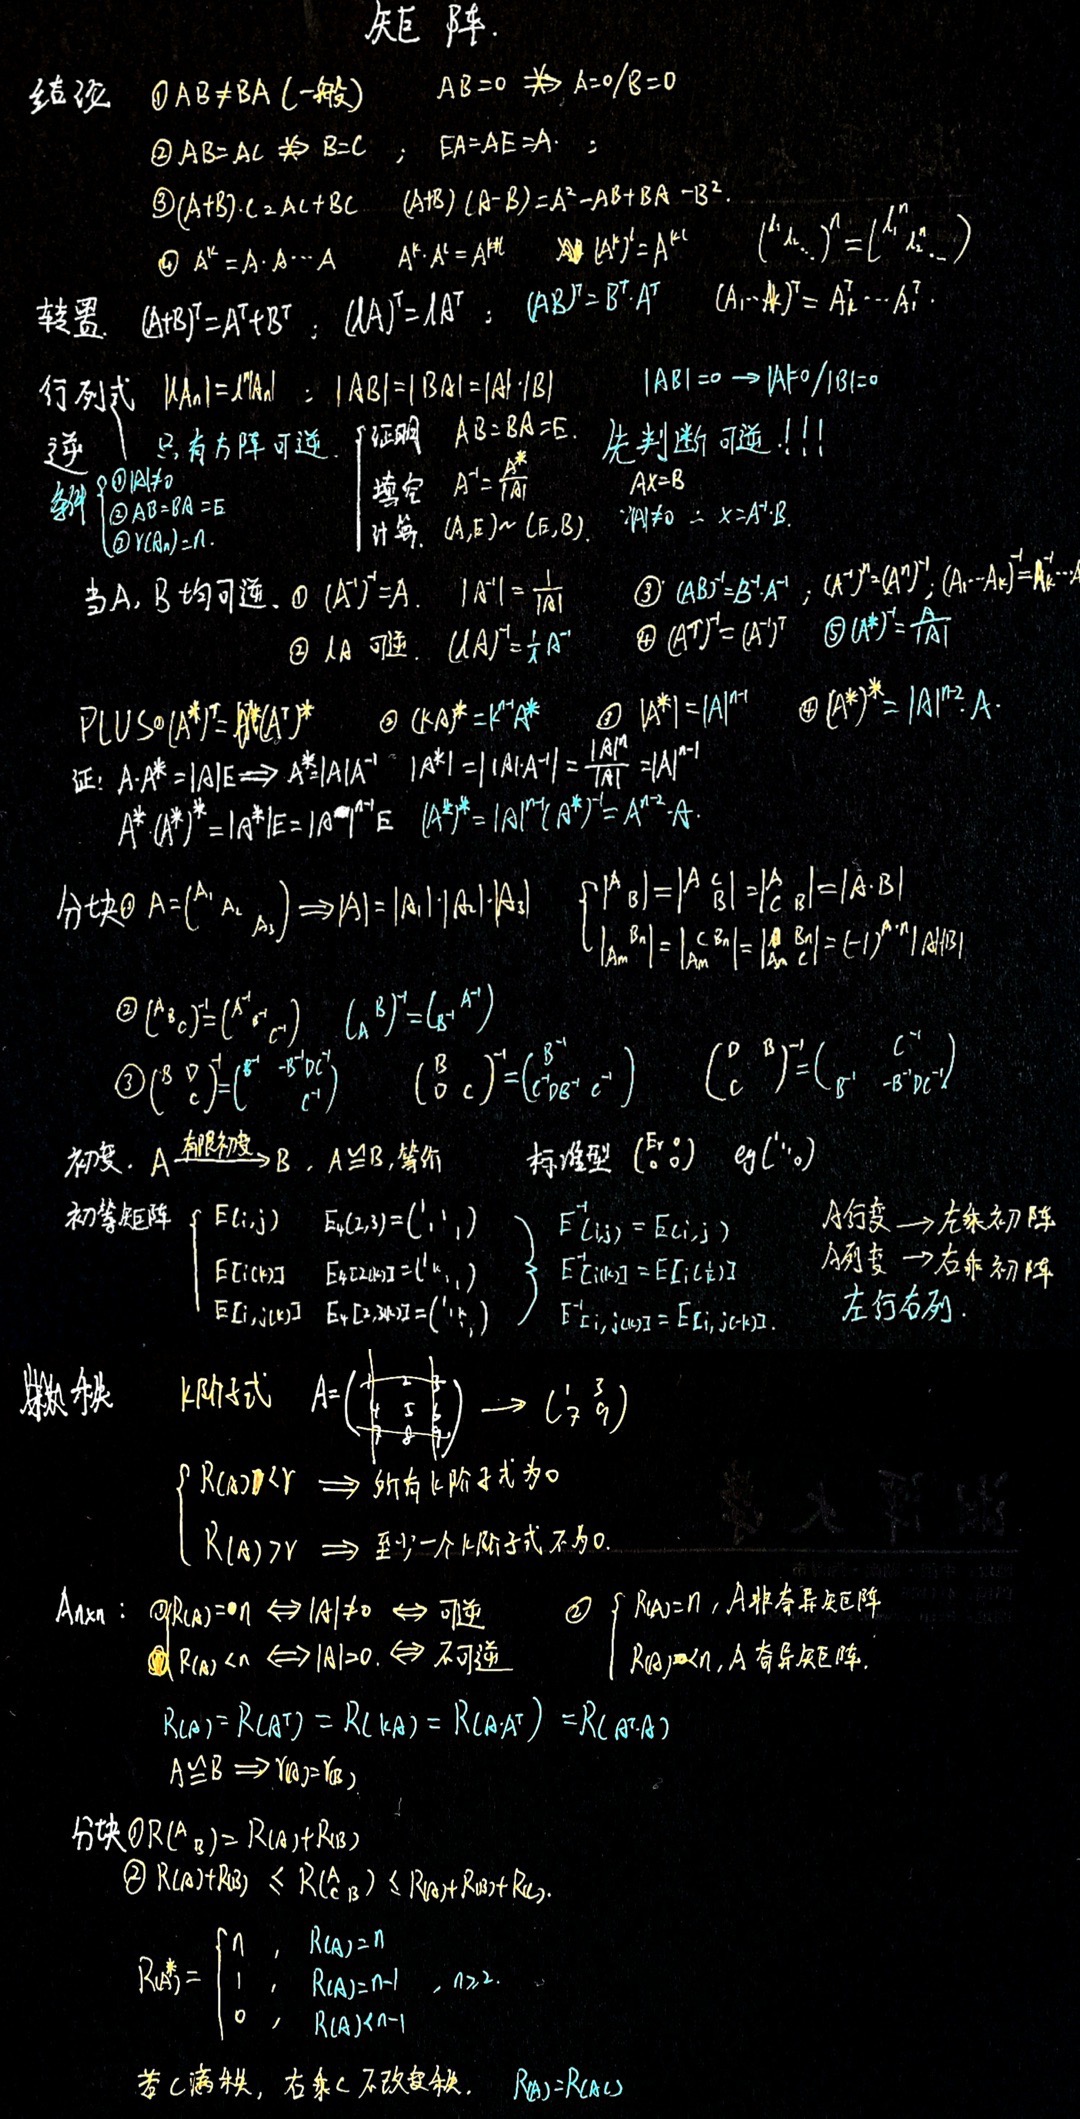 矩阵.
结论 ①AB≠BA(一般) AB=0 ⇏ A=0/B=0
②AB=AC ⇏ B=C ; EA=AE=A. ;
③(A+B)·C=AC+BC (A+B)(A-B)=A²-AB+BA-B².
④ Aᵏ=A·A···A Aᵏ·Aˡ=Aᵏ⁺ˡ (Aᵏ)ˡ=Aᵏˡ (λ₁ λ₂ ⋱)ⁿ=(λ₁ⁿ λ₂ⁿ ⋱)
转置. (A+B)ᵀ=Aᵀ+Bᵀ ; (λA)ᵀ=λAᵀ ; (AB)ᵀ=Bᵀ·Aᵀ (A₁···Aₖ)ᵀ=Aₖᵀ···A₁ᵀ.
行列式 |λAₙ|=λⁿ|Aₙ| ; |AB|=|BA|=|A|·|B| |AB|=0 → |A|=0/|B|=0
逆 只有方阵可逆. 证明 AB=BA=E. 先判断可逆!!!
条件 ①|A|≠0 填空 A⁻¹=A*/|A| AX=B
②AB=BA=E 计算. (A,E)~(E,B). |A|≠0 ∴ X=A⁻¹·B.
③r(Aₙ)=n.
当A,B均可逆. ① (A⁻¹)⁻¹=A. |A⁻¹|=1/|A| ③ (AB)⁻¹=B⁻¹·A⁻¹ ; (A⁻¹)ⁿ=(Aⁿ)⁻¹; (A₁···Aₖ)⁻¹=Aₖ⁻¹···A
② λA 可逆. (λA)⁻¹=1/λ A⁻¹ ④ (Aᵀ)⁻¹=(A⁻¹)ᵀ ⑤(A*)⁻¹=A/|A|
PLUS①(A*)ᵀ=(Aᵀ)* ② (kA)*=kⁿ⁻¹A* ③ |A*|=|A|ⁿ⁻¹ ④ (A*)*=|A|ⁿ⁻²·A.
证: A·A*=|A|E ⟹ A*=|A|A⁻¹ |A*|=||A|·A⁻¹|=|A|ⁿ/|A|=|A|ⁿ⁻¹
A*·(A*)*=|A*|E=|A|ⁿ⁻¹E (A*)*=|A|ⁿ⁻¹(A*)⁻¹=Aⁿ⁻²·A.
分块① A=(A₁ A₂ A₃) ⟹|A|=|A₁|·|A₂|·|A₃| |A B|=|A C B|=|A C B|=|A·B|
|Aₘ Bₙ|=|C Bₙ Aₘ|=|Bₙ Aₘ C|=(-1)ᵐ·ⁿ|A||B|
②(A B C)⁻¹=(A⁻¹ B⁻¹ C⁻¹) (A B)⁻¹=(B⁻¹ A⁻¹)
③(B D C)⁻¹=(B⁻¹ -B⁻¹DC⁻¹ C⁻¹) (B D C)⁻¹=(B⁻¹ C⁻¹DB⁻¹ C⁻¹) (D B C)⁻¹=(C⁻¹ B⁻¹ -B⁻¹DC⁻¹)
初变. A 有限初变→B. A≅B,等价 标准型 (Eᵣ 0 0 0) eg(1 ⋱ 0)
初等矩阵 E(i,j) E₄(2,3)=(1 1 1) E⁻¹(i,j)=E(i,j) A行变 → 左乘初阵
E[i(k)] E₄[2(k)]=(1 k 1 1) E⁻¹[i(k)]=E[i(1/k)] A列变 → 右乘初阵
E[i,j(k)] E₄[2,3(k)]=(1 1 k) E⁻¹[i,j(k)]=E[i,j(-k)]. 左行右列.
秩 k阶子式 A=(1 2 3 4 5 6 7 8 9) → (1 3 7 9)
R(A)<r ⟹ 所有k阶子式为0
R(A)>r ⟹ 至少一个k阶子式不为0.
Aₙₓₙ: ①R(A)=n ⟺|A|≠0 ⟺ 可逆 ② R(A)=n, A非奇异矩阵
R(A)<n ⟺|A|=0. ⟺ 不可逆 R(A)<n, A奇异矩阵.
R(A)=R(Aᵀ)=R(kA)=R(A·Aᵀ)=R(Aᵀ·A)
A≅B ⟹r(A)=r(B)
分块①R(A B)=R(A)+R(B)
②R(A)+R(B) ≤ R(A C B) ≤ R(A)+R(B)+R(C).
R(A*)= n , R(A)=n
1 , R(A)=n-1 , n≥2.
0 , R(A)<n-1
若C满秩, 右乘C不改变秩. R(A)=R(AC)